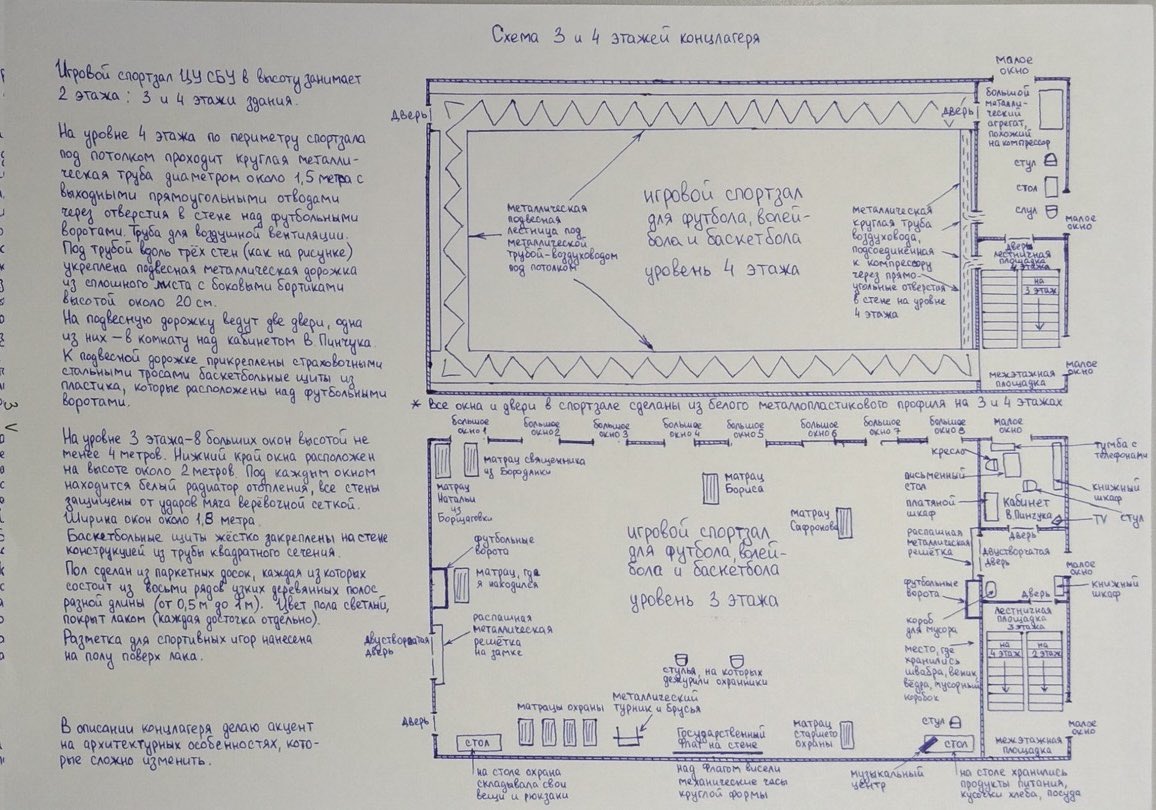 Схема 3 и 4 этажей концлагеря
Игровой спортзал ЦУ СБУ в высоту занимает
2 этажа: 3 и 4 этажи здания.
На уровне 4 этажа по периметру спортзала
под потолком проходит круглая металли-
ческая труба диаметром около 1,5 метра с
выходными прямоугольными отводами
через отверстия в стене над футбольными
воротами. Труба для воздушной вентиляции.
Под трубой вдоль трёх стен (как на рисунке)
укреплена подвесная металлическая дорожка
из сплошного листа с боковыми бортиками
высотой около 20 см.
На подвесную дорожку ведут две двери, одна
из них – в комнату над кабинетом В. Пинчука.
К подвесной дорожке прикреплены страховочными
стальными тросами баскетбольные щиты из
пластика, которые расположены над футбольными
воротами.
На уровне 3 этажа – 8 больших окон высотой не
менее 4 метров. Нижний край окна расположен
на высоте около 2 метров. Под каждым окном
находится белый радиатор отопления, все стены
защищены от ударов мяча верёвочной сеткой.
Ширина окон около 1,8 метра.
Баскетбольные щиты жёстко закреплены на стене
конструкцией из трубы квадратного сечения.
Пол сделан из паркетных досок, каждая из которых
состоит из восьми рядов узких деревянных полос
разной длины (от 0,5 м до 1 м). Цвет пола светлый,
покрыт лаком (каждая досточка отдельно).
Разметка для спортивных игор нанесена
на полу поверх лака.
В описании концлагеря делаю акцент
на архитектурных особенностях, кото-
рые сложно изменить.
малое
окно
дверь
дверь
большой
металли-
ческий
агрегат,
похожий
на компрессор
стул
стол
стул
малое
окно
металлическая
подвесная
лестница под
металлической
трубой-воздуховодом
под потолком
игровой спортзал
для футбола, волей-
бола и баскетбола
уровень 4 этажа
металлическая
круглая труба
воздуховода,
подсоединённая
к компрессору
через прямо-
угольные отверстия
в стене на уровне
4 этажа
дверь
лестничная
площадка
4 этажа
на
3 этаж
межэтажная
площадка
малое
окно
* Все окна и двери в спортзале сделаны из белого металлопластикового профиля на 3 и 4 этажах
большое
окно 1
большое
окно 2
большое
окно 3
большое
окно 4
большое
окно 5
большое
окно 6
большое
окно 7
большое
окно 8
малое
окно
матрац священника
из Бородянки
матрац
Натальи
из
Борщаговки
матрац
Бориса
матрац
Сафронова
кресло
письменный
стол
платяной
шкаф
Кабинет
В. Пинчука
тумба с
телефонами
книжный
шкаф
стул
TV
дверь
футбольные
ворота
матрац, где
я находился
распашная
металлическая
решётка
на замке
двустворчатая
дверь
дверь
игровой спортзал
для футбола, волей-
бола и баскетбола
уровень 3 этажа
распашная
металлическая
решётка
двустворчатая
дверь
малое
окно
книжный
шкаф
футбольные
ворота
дверь
короб
для мусора
место, где
хранились
швабра, веник,
вёдра, мусорный
коробок
лестничная
площадка
3 этажа
на
4 этаж
на
2 этаж
стулья, на которых
дежурили охранники
матрацы охраны
металлический
турник и брусья
Государственный
флаг на стене
матрац
старшего
охраны
стул
стол
стол
межэтажная
площадка
малое
окно
на столе охрана
складывала свои
вещи и рюкзаки
над флагом висели
механические часы
круглой формы
музыкальный
центр
на столе хранились
продукты питания,
кусочки хлеба, посуда